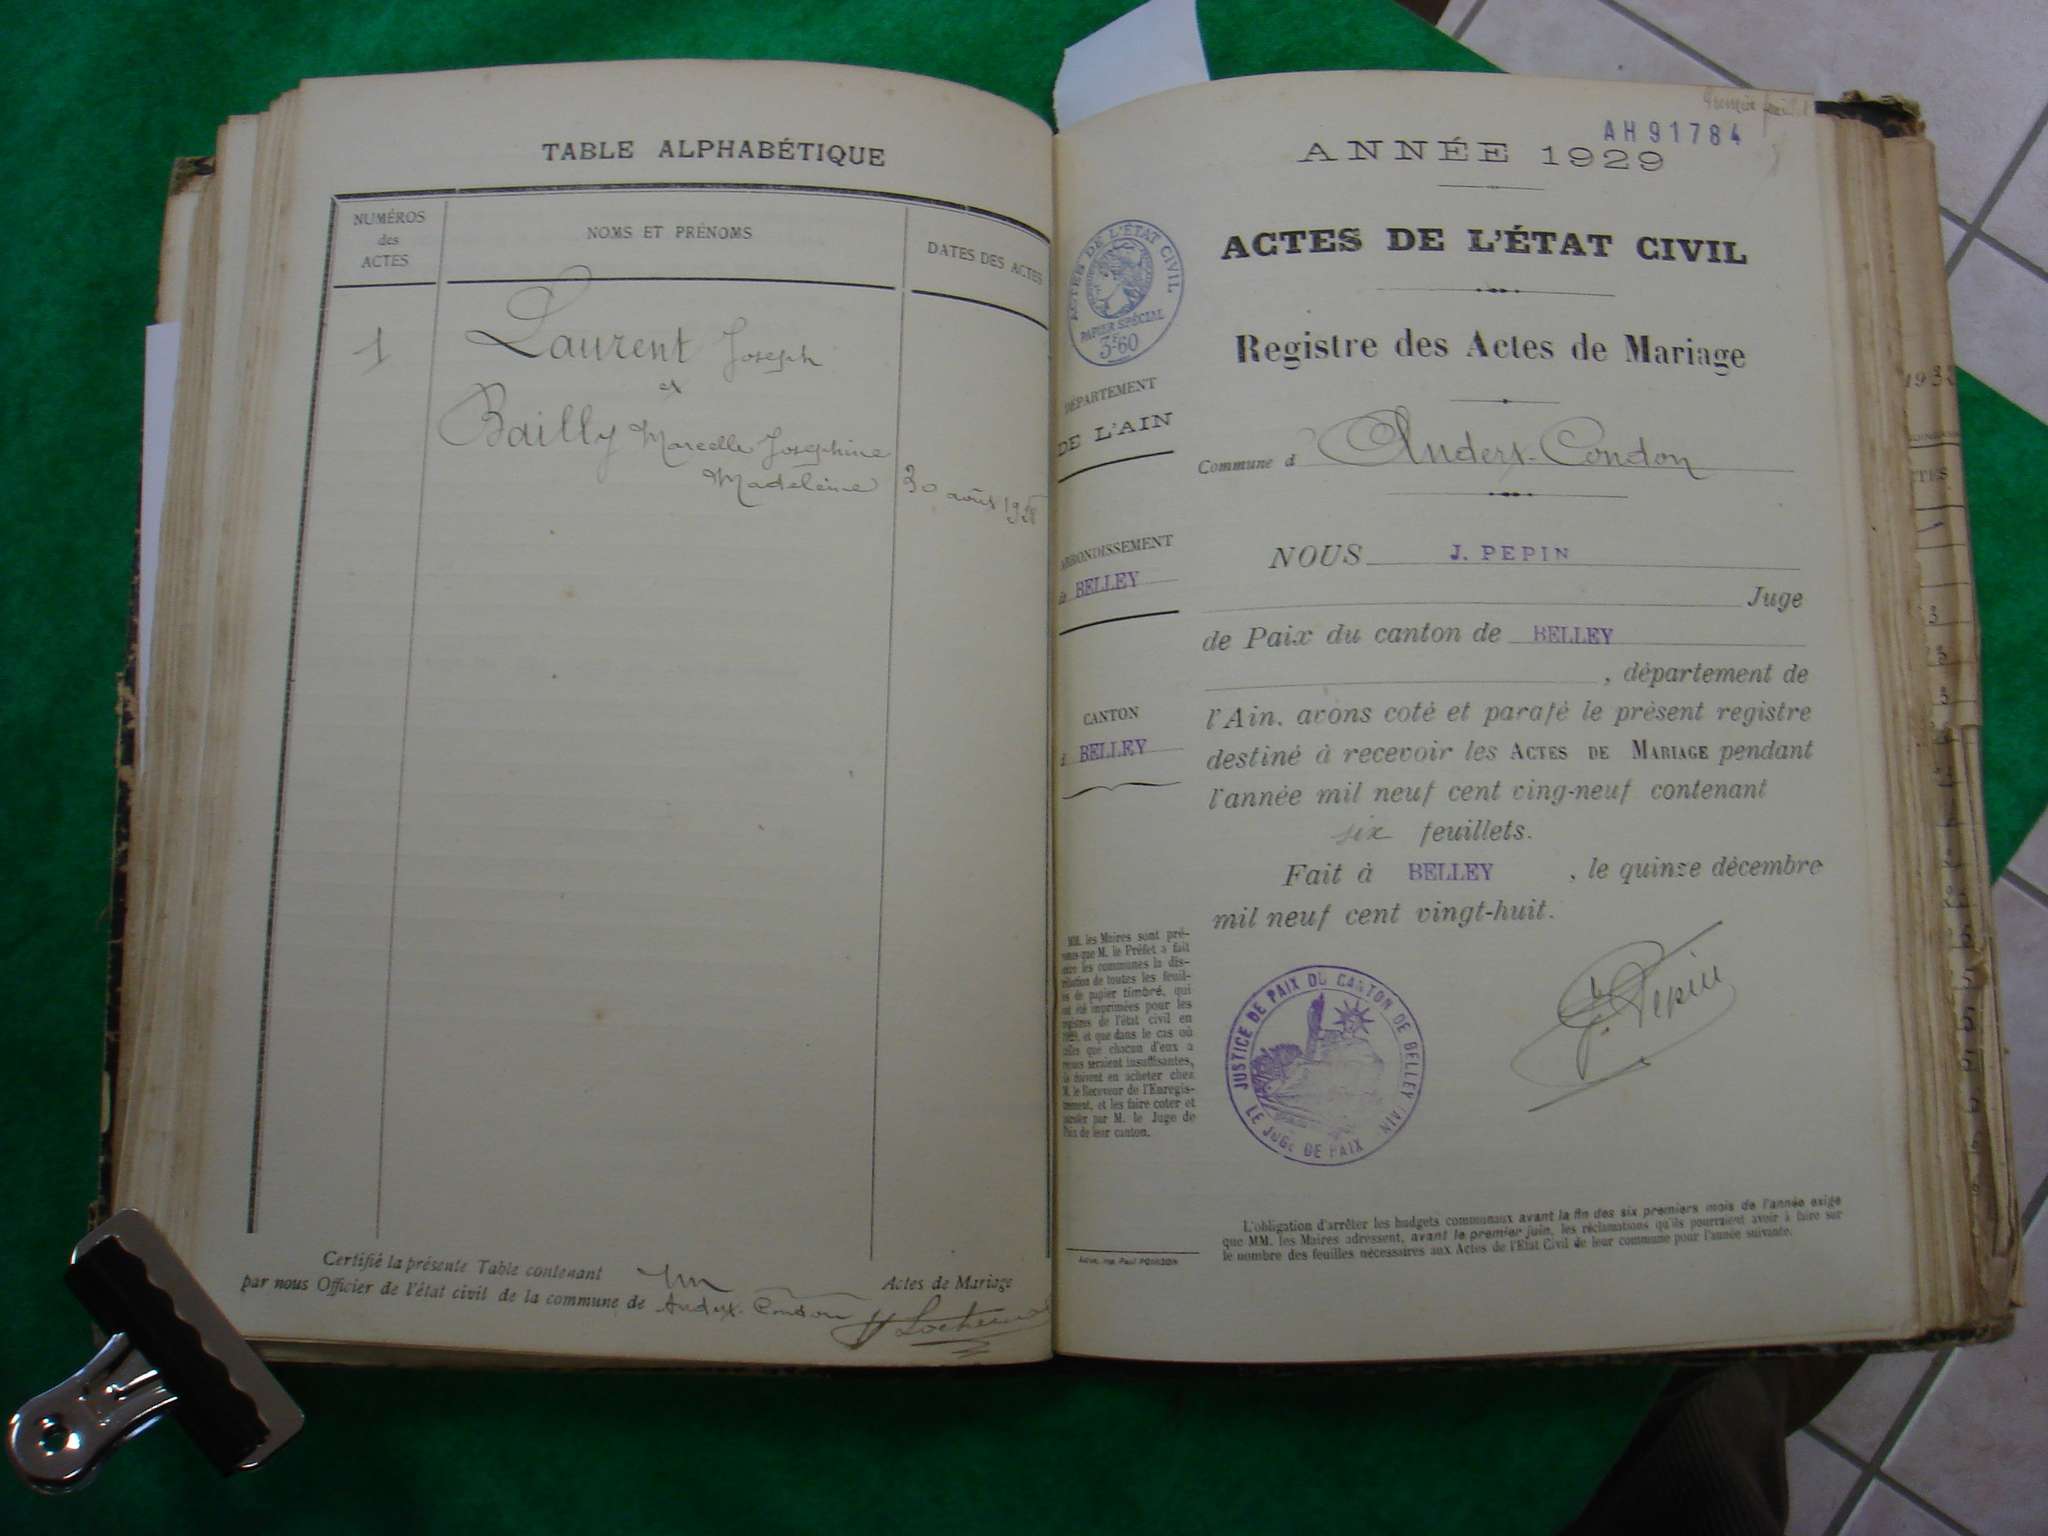 TABLE ALPHABÉTIQUE
NUMÉROS
des
ACTES
NOMS ET PRÉNOMS
DATES DES ACTES
1
Laurent Joseph
et
Bailly Marcelle Joséphine
Madeleine
30 août 1928
Certifié la présente Table contenant un Actes de Mariage
par nous Officier de l'état civil de la commune de Andert-Condon
Première feuillet
AH91784
ANNÉE 1929
ACTES DE L'ÉTAT CIVIL
Registre des Actes de Mariage
ACTES DE L'ÉTAT CIVIL
PAPIER SPÉCIAL
3F60
DÉPARTEMENT
DE L'AIN
Commune d'Andert-Condon
ARRONDISSEMENT
de BELLEY
CANTON
d BELLEY
NOUS J. PEPIN
Juge
de Paix du canton de BELLEY
, département de
l'Ain, avons coté et parafé le présent registre
destiné à recevoir les ACTES DE MARIAGE pendant
l'année mil neuf cent ving-neuf contenant
six feuillets.
Fait à BELLEY, le quinze décembre
mil neuf cent vingt-huit.
MM. les Maires sont pré-
venus que M. le Préfet a fait
les communes la dis-
tribution de toutes les feuil-
es de papier timbré, qui
ont été imprimées pour les
registres de l'état civil en
1929, et que dans le cas où
celles que chacun d'eux a
reçues seraient insuffisantes,
ils doivent en acheter chez
M. le Receveur de l'Enregis-
trement, et les faire coter et
parafer par M. le Juge de
Paix de leur canton.
JUSTICE DE PAIX DU CANTON DE BELLEY (AIN)
LE JUGE DE PAIX
J. Pepin
L'obligation d'arrêter les budgets communaux avant la fin des six premiers mois de l'année exige
que MM. les Maires adressent, avant le premier juin, les réclamations qu'ils pourraient avoir à faire sur
le nombre des feuilles nécessaires aux Actes de l'Etat Civil de leur commune pour l'année suivante.